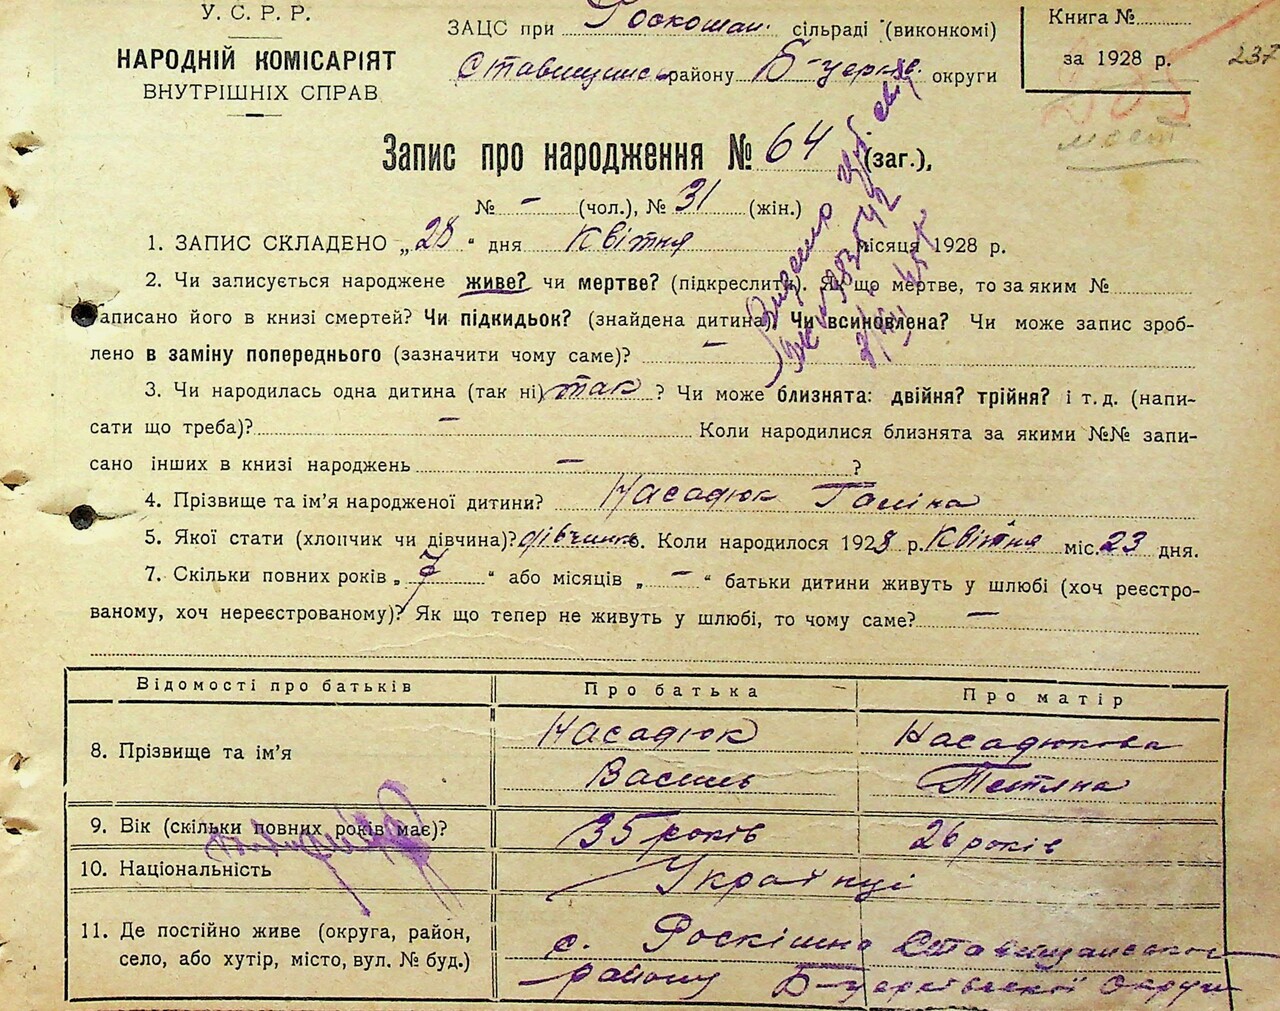 У. С. Р. Р.
НАРОДНІЙ КОМІСАРІЯТ
ВНУТРІШНІХ СПРАВ
ЗАЦС при Роскошан. сільраді (виконкомі)
Ставищанс. району Б-церків. округи
Книга №
за 1928 р.
237
Запис про народження № 64 (заг.),
№ – (чол.), № 31 (жін.)
1. ЗАПИС СКЛАДЕНО „28“ дня Квітня місяця 1928 р.
2. Чи записується народжене живе? чи мертве? (підкреслити). Як що мертве, то за яким №
записано його в книзі смертей? Чи підкидьок? (знайдена дитина) Чи всиновлена? Чи може запис зроб-
лено в заміну попереднього (зазначити чому саме)? –
3. Чи народилась одна дитина (так ні) так ? Чи може близнята: двійня? трійня? і т. д. (напи-
сати що треба)? – Коли народилися близнята за якими №№ запи-
сано інших в книзі народжень – ?
4. Прізвище та ім'я народженої дитини? Насадюк Галіна
5. Якої стати (хлопчик чи дівчина)? дівчинка 6. Коли народилося 1928 р. Квітня міс. 23 дня.
7. Скільки повних років „ 7 “ або місяців „ – “ батьки дитини живуть у шлюбі (хоч реєстро-
ваному, хоч нереєстрованому)? Як що тепер не живуть у шлюбі, то чому саме? –
Відомості про батьків Про батька Про матір
8. Прізвище та ім'я Насадюк Василь Насадюкова Тетяна
9. Вік (скільки повних років має)? 35 років 26 років
10. Національність Українці
11. Де постійно живе (округа, район, с. Роскішна Ставищанського
село, або хутір, місто, вул. № буд.) району Б-церківської Округи